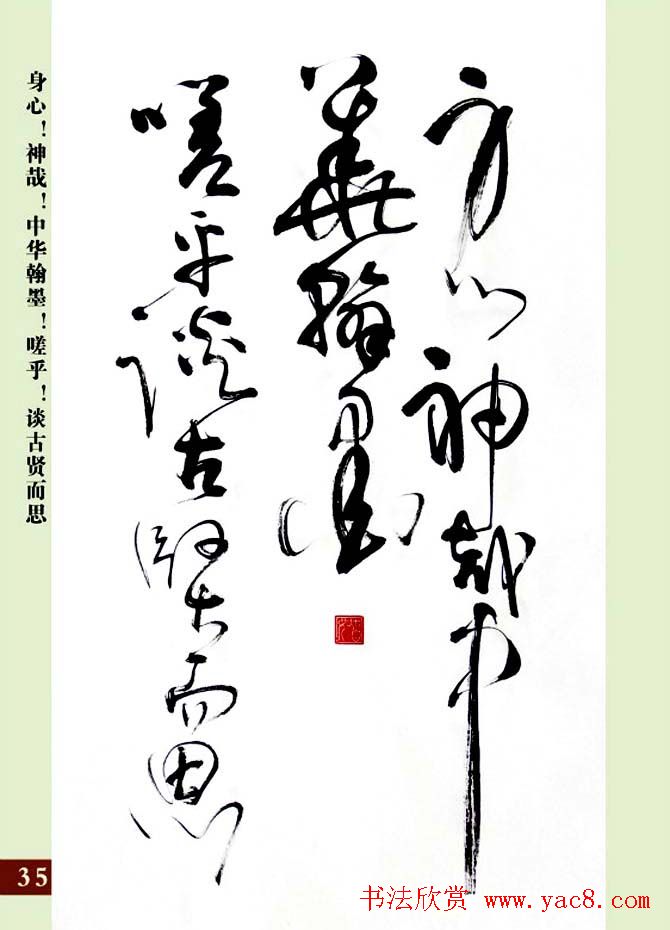 身心神哉中
華翰墨
嗟乎谈古賢而思
身心！神哉！中华翰墨！嗟乎！谈古贤而思
35
书法欣赏 www.yac8.com